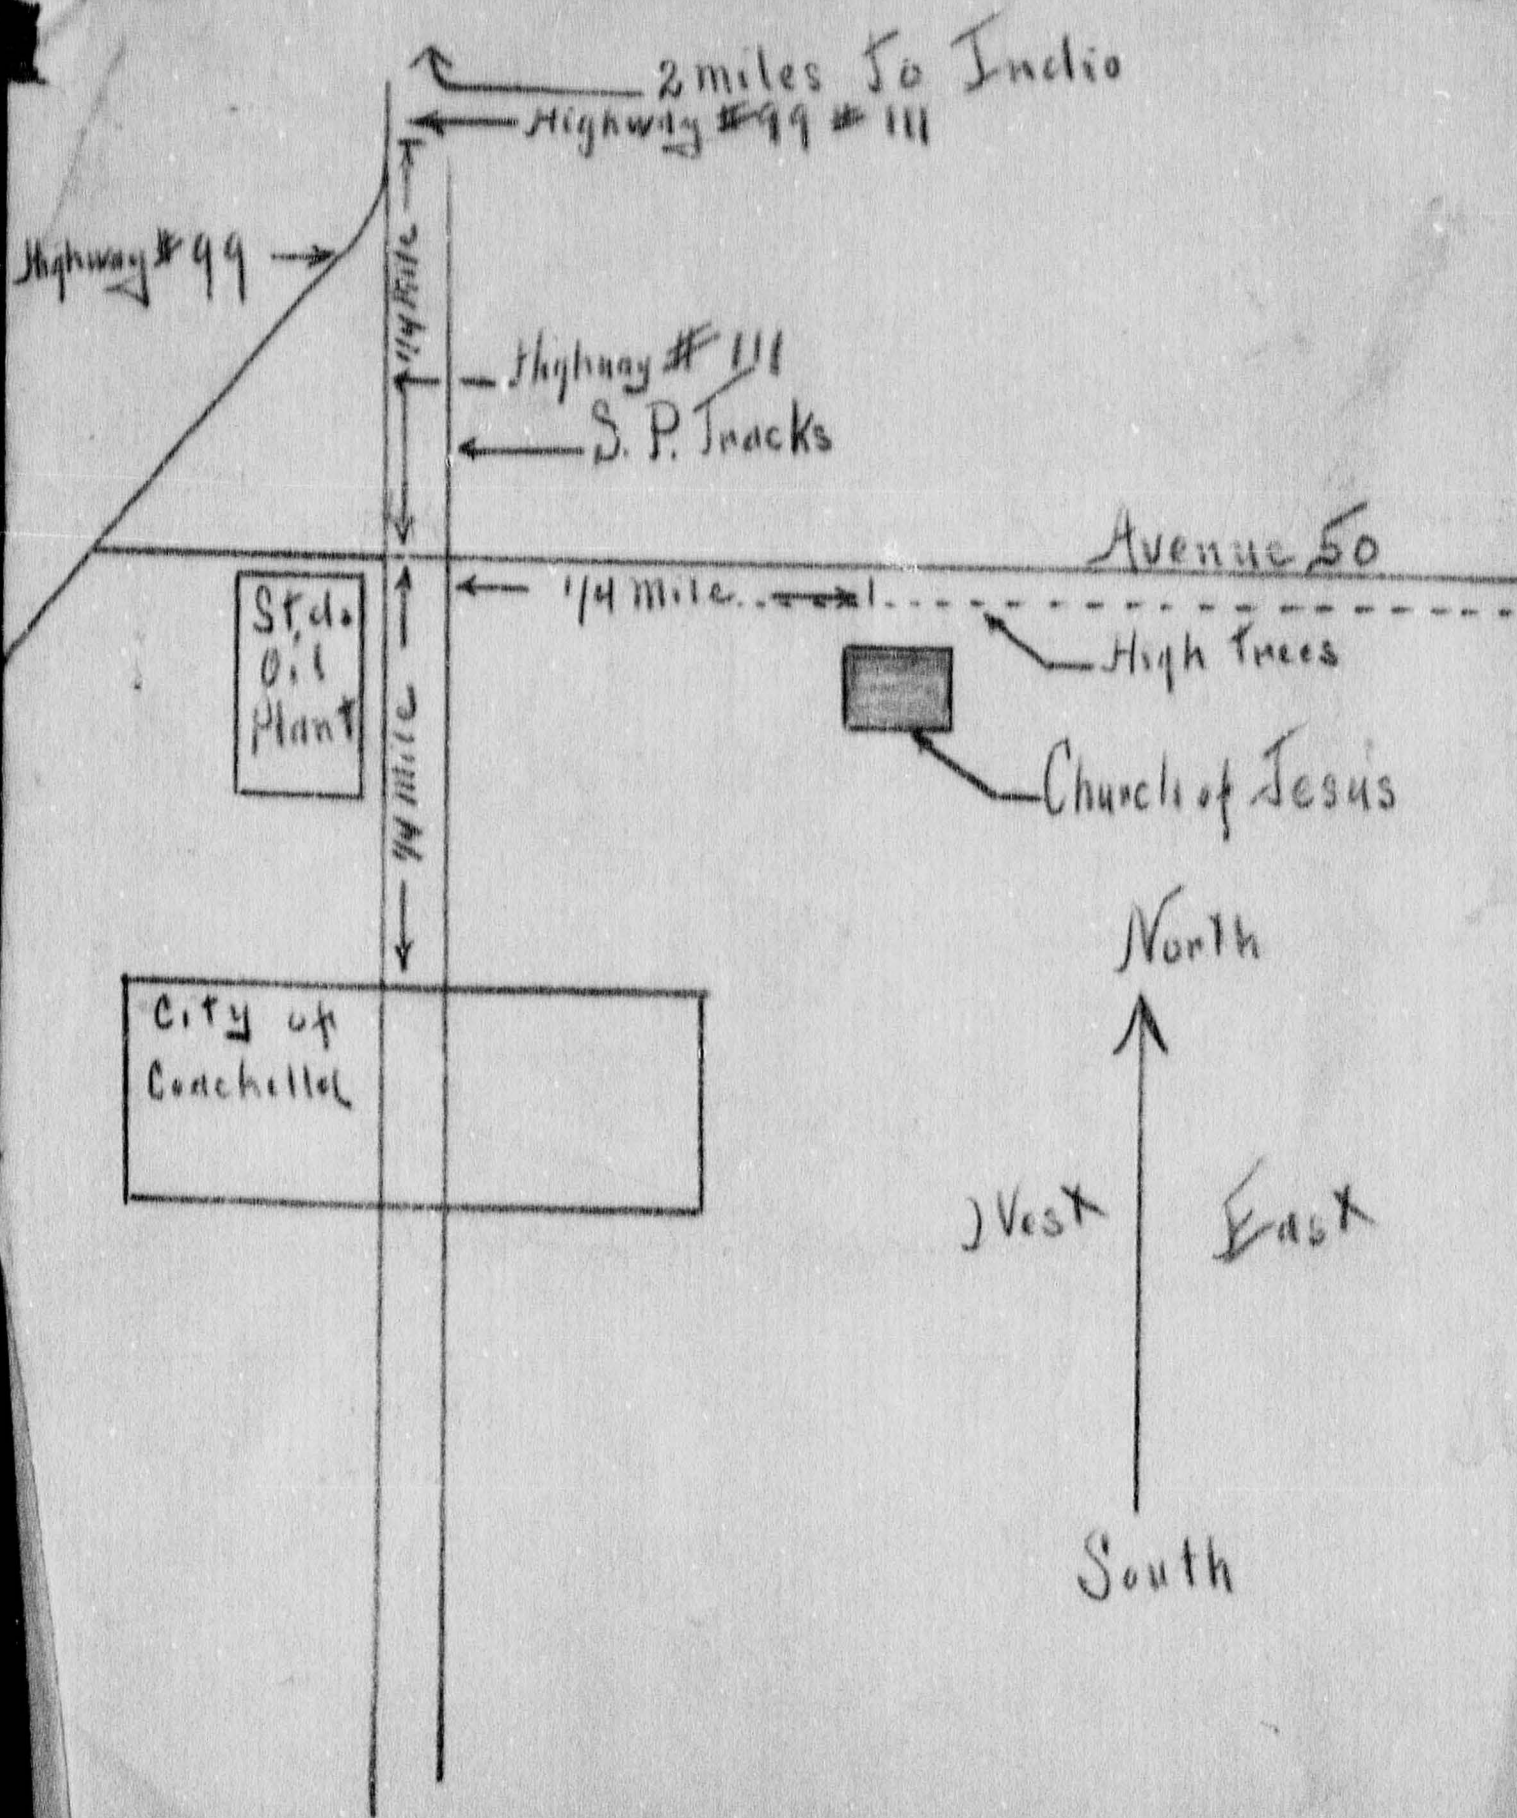 2 miles To Indio
Highway #99 # 111
Highway # 99
1/4 Mile
Highway # 111
S. P. Tracks
Avenue 50
1/4 Mile
Std.
Oil
Plant
High Trees
1/4 Mile
Church of Jesus
North
City of
Coachella
West
East
South